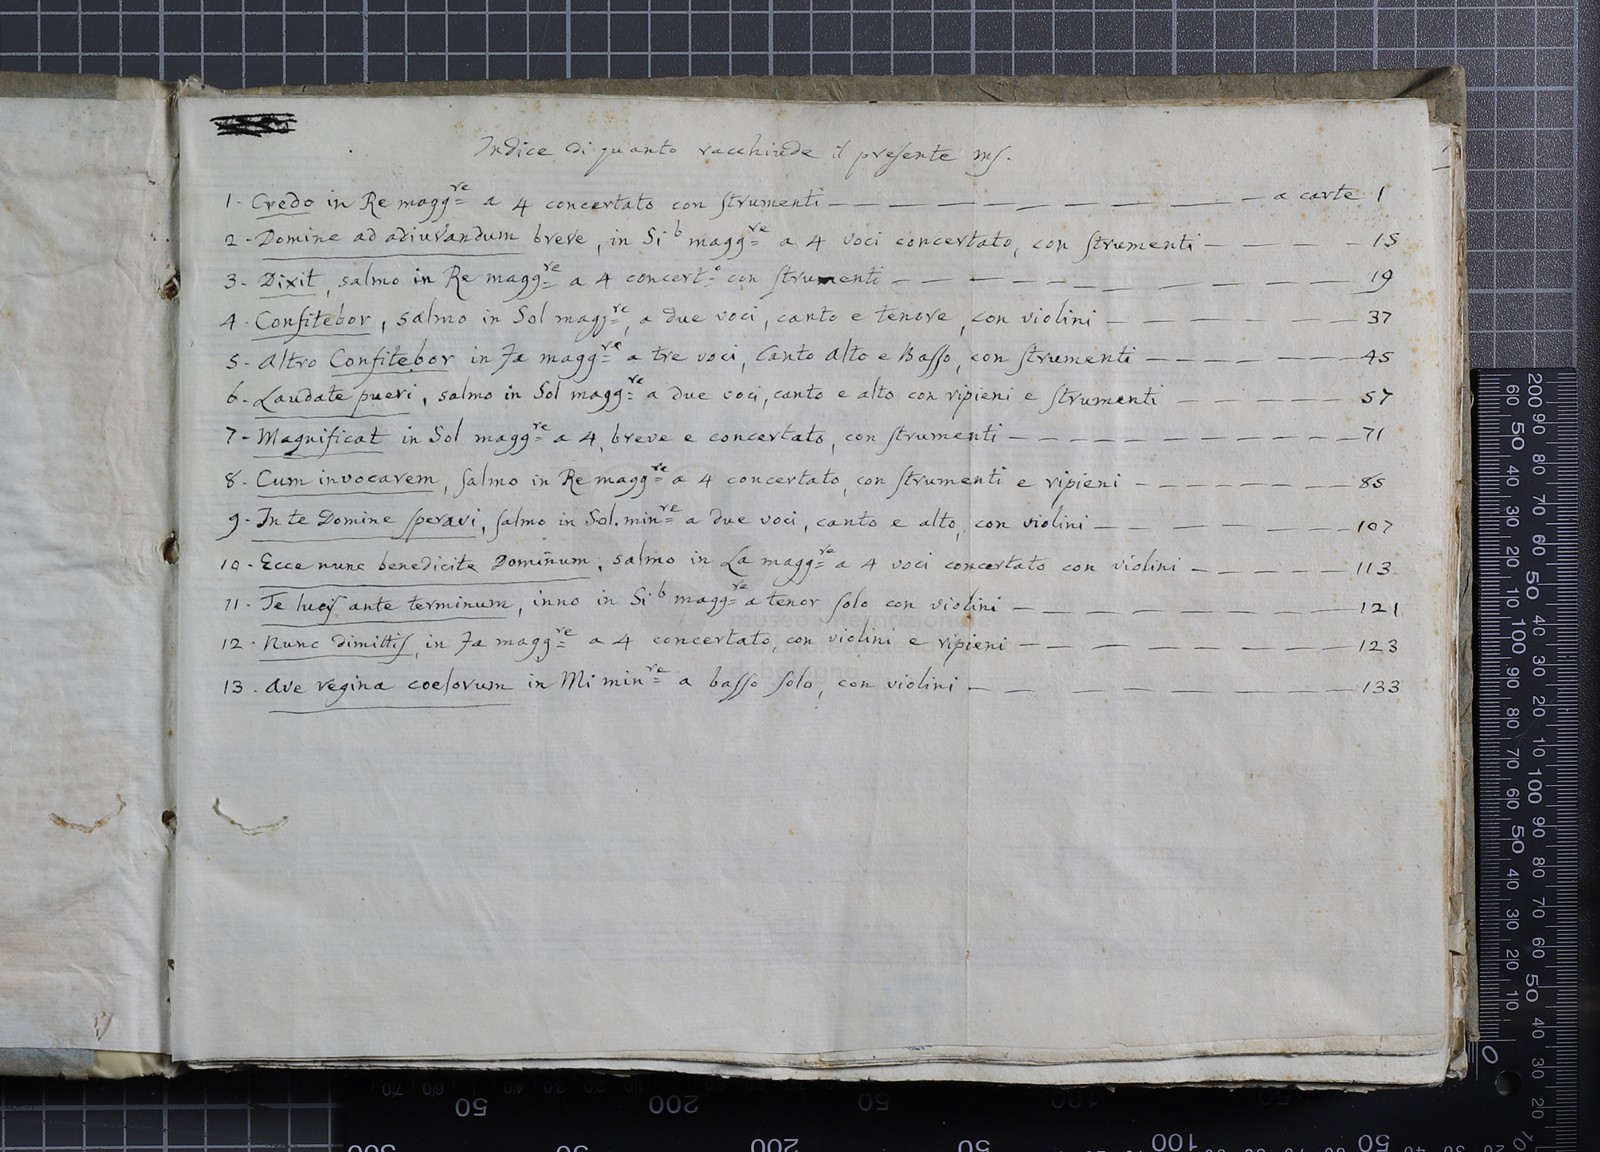 Indice di quanto racchiude il presente ms.
1. Credo in Re magg.re a 4 concertato con strumenti — — — — — — — a carte 1
2. Domine ad adiuvandum breve, in Si b magg.re a 4 voci concertato, con strumenti — — — — 15
3. Dixit, salmo in Re magg.re a 4 concert.o con strumenti — — — — — — — 19
4. Confitebor, salmo in Sol magg.re, a due voci, canto e tenore, con violini — — — — — 37
5. Altro Confitebor in Fa magg.re a tre voci, Canto Alto e Basso, con strumenti — — — — — 45
6. Laudate pueri, salmo in Sol magg.re a due voci, canto e alto con ripieni e strumenti — — — — — 57
7. Magnificat in Sol magg.re a 4, breve e concertato, con strumenti — — — — — — — 71
8. Cum invocarem, salmo in Re magg.re a 4 concertato, con strumenti e ripieni — — — — — 85
9. In te Domine speravi, salmo in Sol. min.re a due voci, canto e alto, con violini — — — — — 107
10. Ecce nunc benedicite Dominum, salmo in La magg.re a 4 voci concertato con violini — — — — 113
11. Te lucis ante terminum, inno in Si b magg.re a tenor solo con violini — — — — — — — 121
12. Nunc dimittis, in Fa magg.re a 4 concertato, con violini e ripieni — — — — — — — 123
13. Ave regina coelorum in Mi min.re a basso solo, con violini — — — — — — — 133